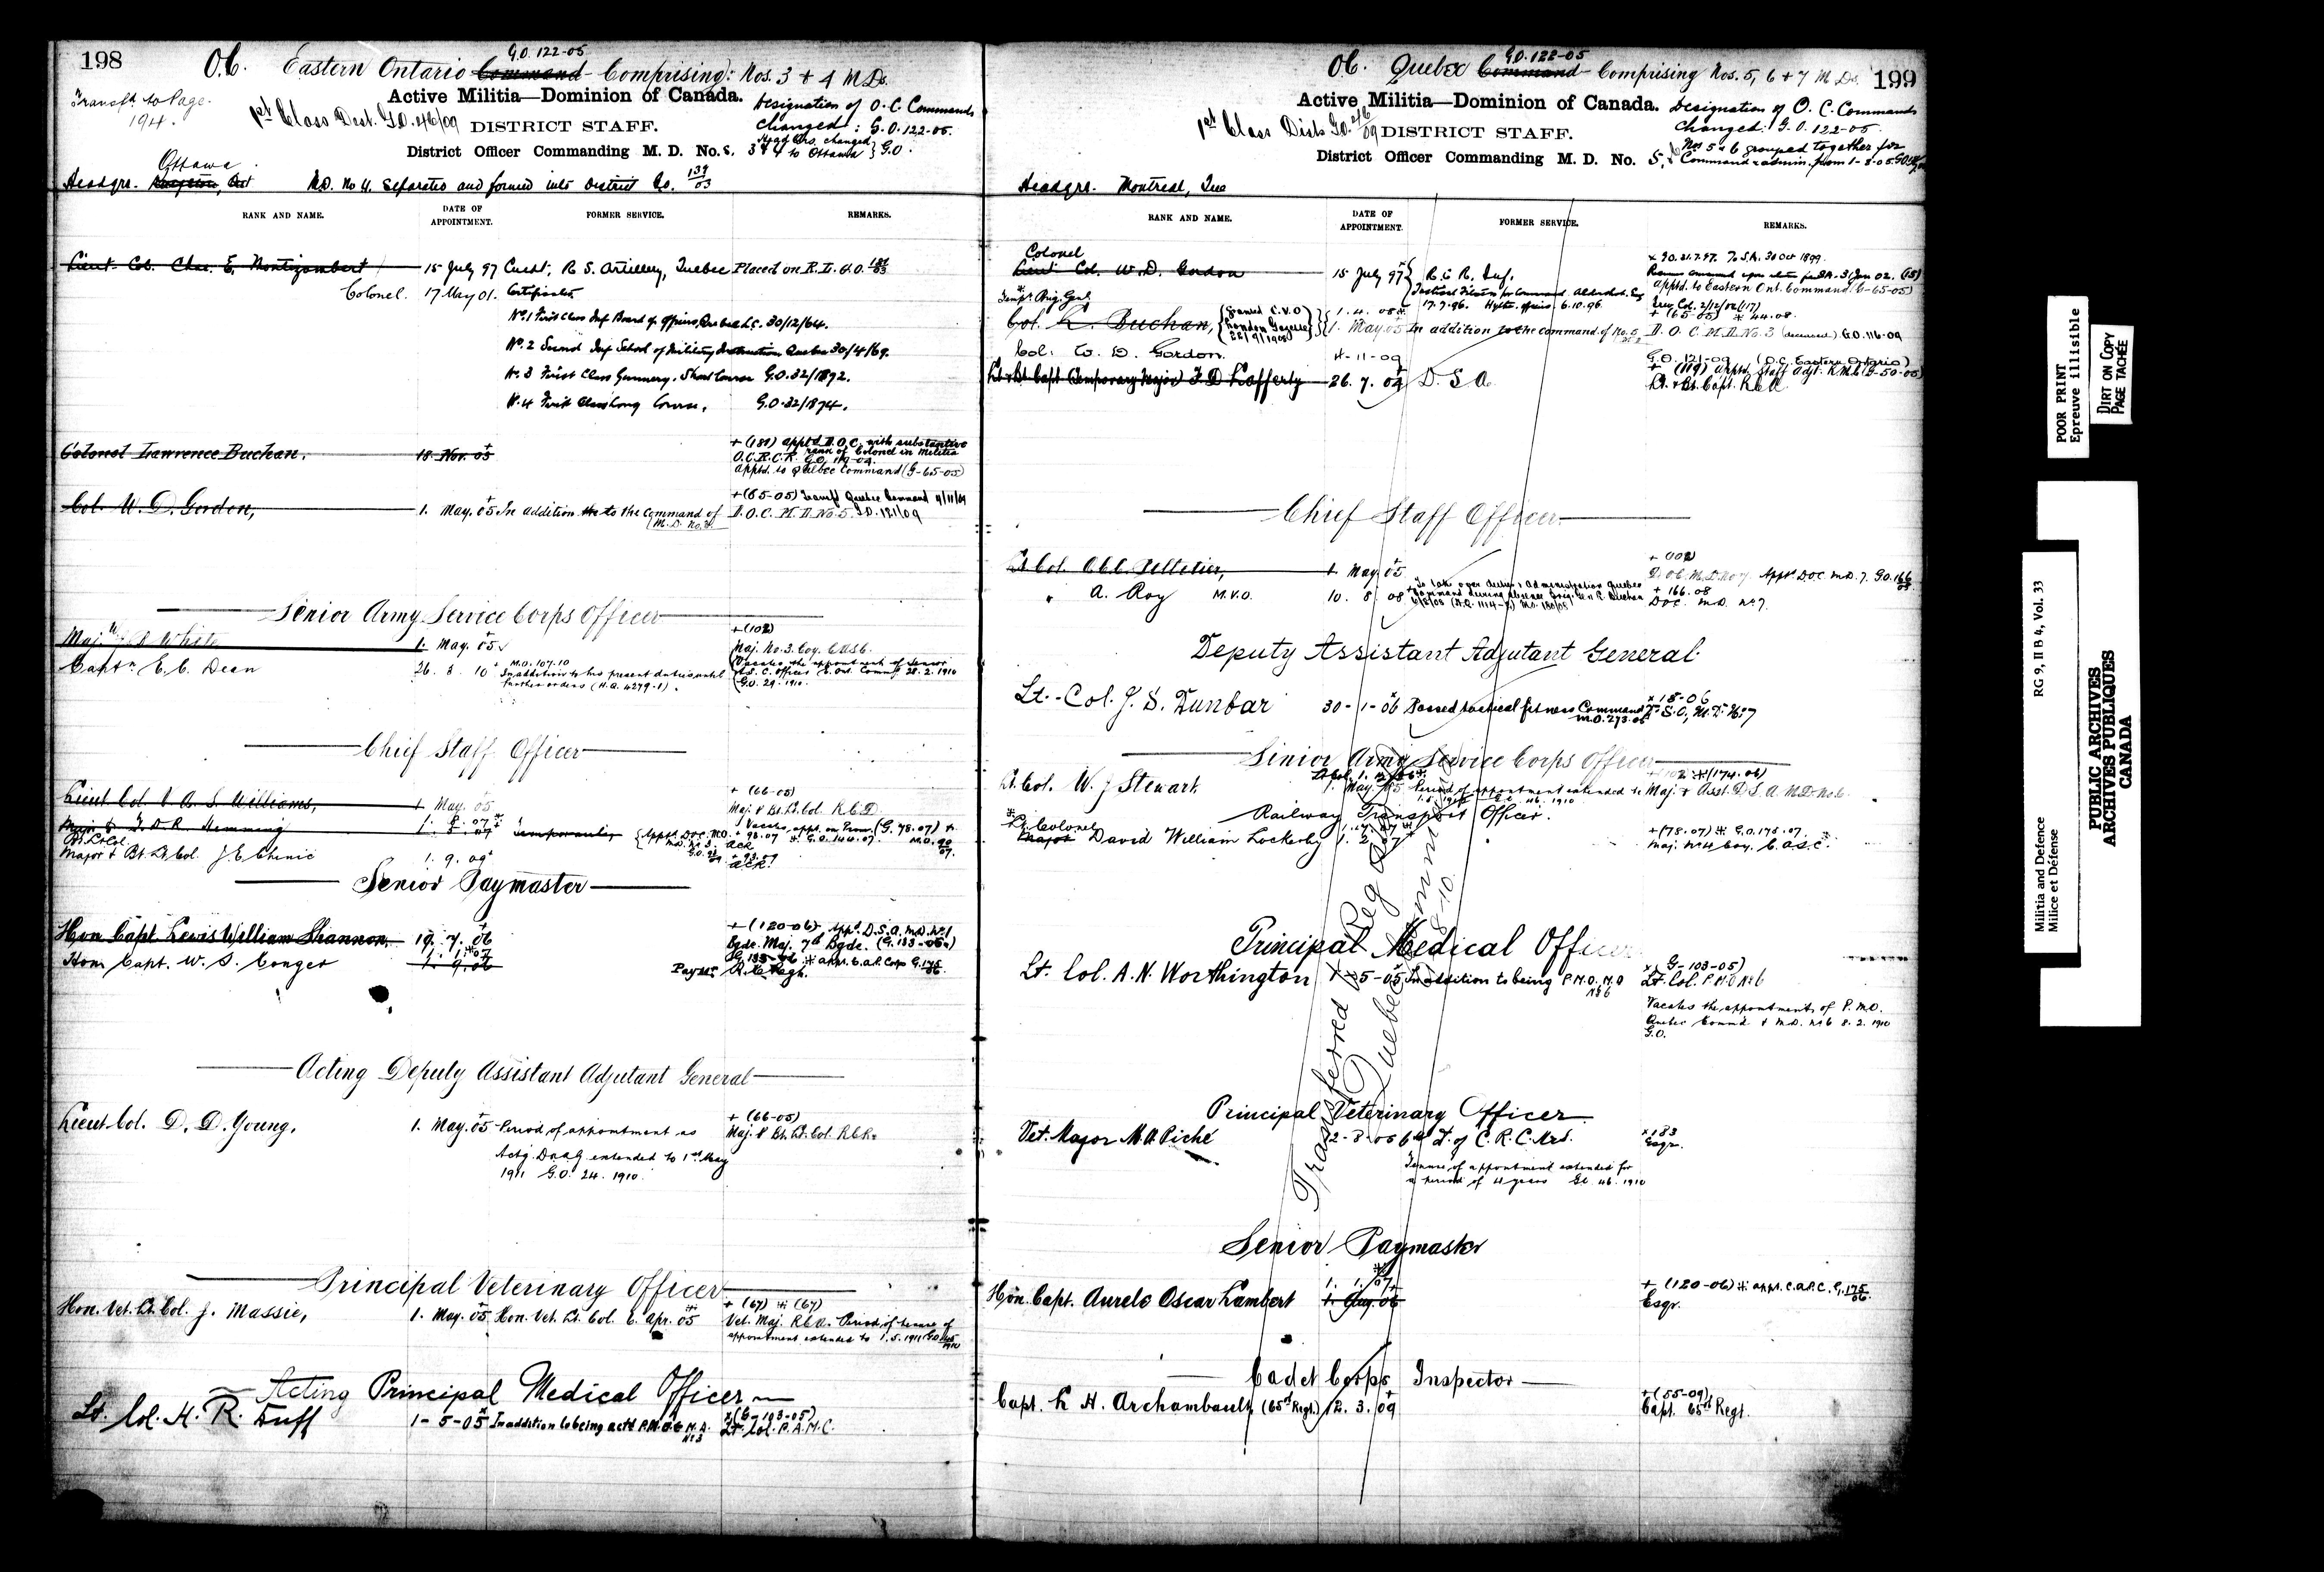 198
G.O. 122-05
O.C. Eastern Ontario Command Comprising: Nos. 3 + 4 M.Ds.
Transfd. to Page.
194.
Active Militia—Dominion of Canada.
Designation of O.C. Commands
changed: G.O. 122-05.
1st Class Dist. G.O. 46/09
DISTRICT STAFF.
Head Qrs. changed
District Officer Commanding M. D. No. 3 + 4 to Ottawa } G.O.
Ottawa
Headqrs. Kingston, Ont
M.D. No 4. Separated and formed into District G.O. 139/03
RANK AND NAME.
DATE OF APPOINTMENT.
FORMER SERVICE.
REMARKS.
Lieut. Col. Chas. E. Montizambert
15 July 97
Comdt. R. S. Artillery, Quebec
Placed on R. L. G.O.
Colonel.
17 May 01.
Certificates
No. 1 First Class Inf Board of Officers Quebec L.C. 30/12/64.
No. 2 Second Inf School of Military Instruction Quebec 30/4/69.
No. 3 First Class Gunnery. Short Course G.O. 32/1892.
No. 4 First Class Long Course. G.O. 32/1874.
Colonel Lawrence Buchan.
18. Nov. 03
+ (181) apptd D.O.C. with substantive
rank of Colonel in Militia
O.C.R.C.R. G.O. 119-04.
apptd. to Quebec Command (G-65-05)
Col. W. D. Gordon,
1. May. 05
In addition to the command of
M.D. No. 3
+ (65-05) Transfd Quebec Command 4/11/09
D.O.C. M.D. No 5. G.O. 121/09
Senior Army Service Corps Officer
White
1. May. 05
+ (102)
Maj. No. 3. Coy. C.A.S.C.
Captn. E. C. Dean
26. 8. 10
M.O. 107-10
In addition to his present duties until
further orders (H.Q. 4279-1).
Vacates the appointment of Senior
A.S.C. Officer E. Ont. Comm. 28. 2. 1910
G.O. 29. 1910.
Chief Staff Officer
Lieut Col. V. A. S. Williams,
1 May. 05
+ (66-05)
Maj. & Bt. Lt. Col. R.C.D.
Hemming
temporarily
Bt. Lt. Col.
Major & Bt. Lt Col. J E Chinic
1. 9. 09
R.C.R.
Senior Paymaster
Hon Capt. Lewis William Shannon.
19. 7. 06
+ (120-06) Appt. D.S.A. M.D. No 1
Bgde. Maj. 7th Bgde. (G. 133-06)
Hon. Capt. W. S. Conger
1. 1. 07
1. 9. 06
Paymr. R.C. Regt.
Acting Deputy Assistant Adjutant General
Lieut Col. D. D. Young.
1. May. 05
Period of appointment as
Actg. D.A.A.G. extended to 1st May
1911 G.O. 24. 1910.
+ (66-05)
Maj. & Bt. Lt. Col. R.C.R.
Principal Veterinary Officer
Hon. Vet. Lt. Col. J. Massie,
1. May. 05
Hon. Vet. Lt. Col. 6. Apr. 05
+ (67) * (67)
Vet. Maj. R.C.A. Period of tenure of
appointment extended to 1.5.1911 G.O. 45/1910
Acting Principal Medical Officer
Lt. Col. H. R. Duff
1-5-05
In addition to being actg P.M.O. M.D. No 3
x (G-103-05)
Lt. Col. P.A.M.C.
199
G.O. 122-05
O.C. Quebec Command Comprising Nos. 5, 6 + 7 M.Ds.
Active Militia—Dominion of Canada.
Designation of O.C. Commands
changed: G.O. 122-05.
1st Class Dist. G.O. 46/09
DISTRICT STAFF.
Nos 5 + 6 grouped together for
District Officer Commanding M. D. No. 5, 6
Command + admin. from 1-3-05
Headqrs. Montreal, Que
RANK AND NAME.
DATE OF APPOINTMENT.
FORMER SERVICE.
REMARKS.
Colonel
Lieut Col. W. D. Gordon
15 July 97
R. C. R. Inf.
Tactical Fitness for Command Aldershot, Eng
17.7.96. Hythe, Officers 6.10.96.
apptd. to Eastern Ont. Command. (G-65-05)
Temp. Brig. Genl.
Col. L. Buchan,
Granted C.V.O
London Gazette
22/9/1908
1. May. 05
In addition to the command of No. 5
D.O.C. M.D. No. 3 (deceased) G.O. 116-09
Col. W. D. Gordon.
4-11-09
G.O. 121-09 (O.C. Eastern Ontario)
Lt & Bt Capt Temporary Major F D Lafferty
26. 7. 04
D. S. A
+ (119) Apptd. Staff Adjt. R.M.C (G-50-05)
Lt. + Bt. Capt. R.C.A
Chief Staff Officer
Lt Col. O.C.C. Pelletier,
1. May. 05
+ (102)
D.O.C. M.D. No 7. Appt. D.O.C. M.D. 7. G.O. 166/08
" A. Roy M.V.O.
10. 8. 08
+ 166. 08
D.O.C. M.D. No 7.
Deputy Assistant Adjutant General
Lt.-Col. J. S. Dunbar
30-1-06
Passed tactical fitness Command
M.O. 273.06
x 18-06
D.S.O., M.D. No 7
Senior Army Service Corps Officer
Lt. Col. W. J Stewart
1. May. 05
Period of appointment extended to
Maj. + Asst. D.S.A. M.D. No. 6.
Railway Transport Officer.
Lt. Colonel
Major David William Lockerby
1. 2. 07
+ (78.07) * G.O. 178.07.
Maj. No 4 Coy. C.A.S.C.
Principal Medical Officer
Lt. Col. A. N. Worthington
1-5-05
In addition to being P.M.O. M.D No 6
x (G-103-05)
Lt. Col. P.M.O No 6
Vacates the appointments of P.M.O.
Quebec Commd. + M.D. No 6 8. 2. 1910
G.O.
Principal Veterinary Officer
Vet. Major M. A. Piché
Tenure of appointment extended for
a period of 4 years G.O. 46. 1910
x 183
Esqr.
Transferred to Reg
Quebec Command
Senior Paymaster
Hon. Capt. Aurele Oscar Lambert
1. 1. 07
1. Aug. 06
+ (120-06) * appt. C.A.P.C. G. 175/06.
Esqr.
Cadet Corps Inspector
Capt. L H. Archambault (65th Regt.)
12. 3. 09
+ (55-09)
Capt. 65th Regt.
POOR PRINT
Epreuve illisible
DIRT ON COPY
PAGE TACHÉE
Militia and Defence
Milice et Défense
RG 9, II B 4, Vol. 33
PUBLIC ARCHIVES
ARCHIVES PUBLIQUES
CANADA